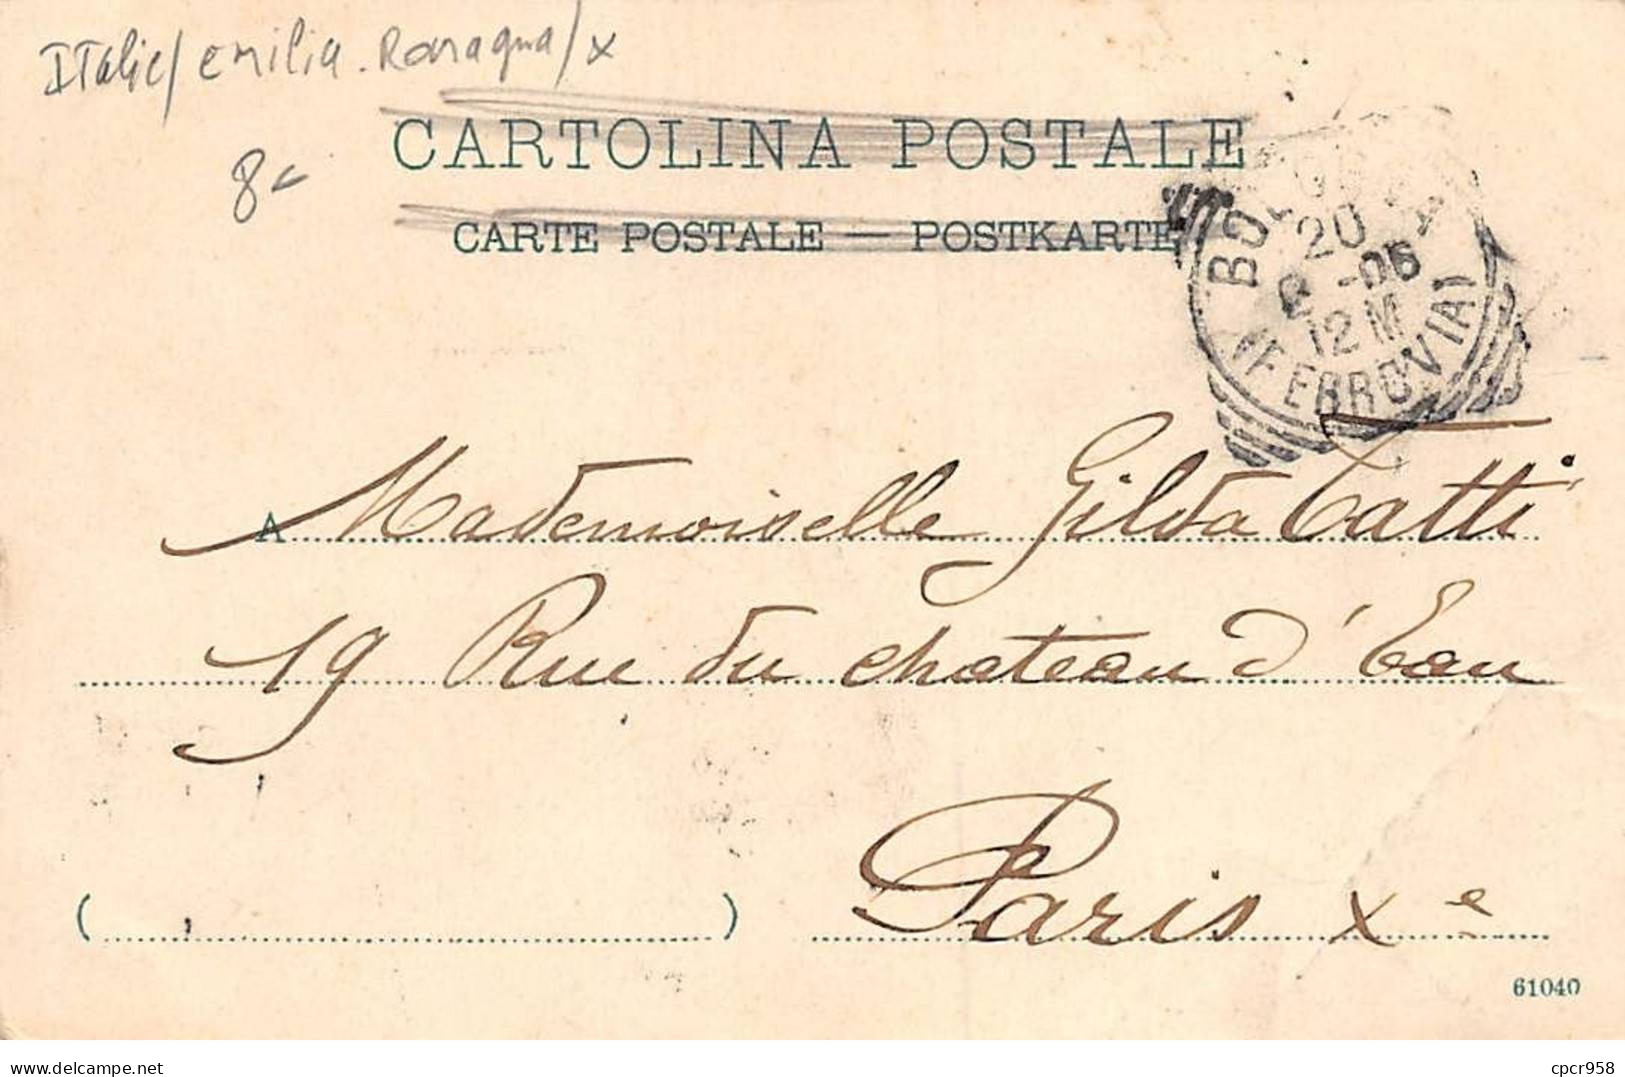 ITalie/ emilia. Romagna/x
8
CARTOLINA POSTALE
CARTE POSTALE — POSTKARTE
BOLOGNA
20
-06
12 M
(FERROVIA)
A Mademoiselle Gilda Tatti
19 Rue du chateau d'Eau
Paris Xe
( )
61040
delcampe.net
cpcr958